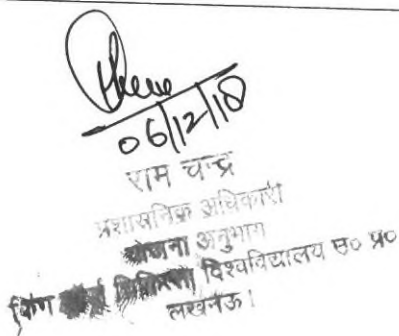 06/12/18
राम चन्द्र
प्रशासनिक अधिकारी
योजना अनुभाग
विश्वविद्यालय उ० प्र०
लखनऊ।